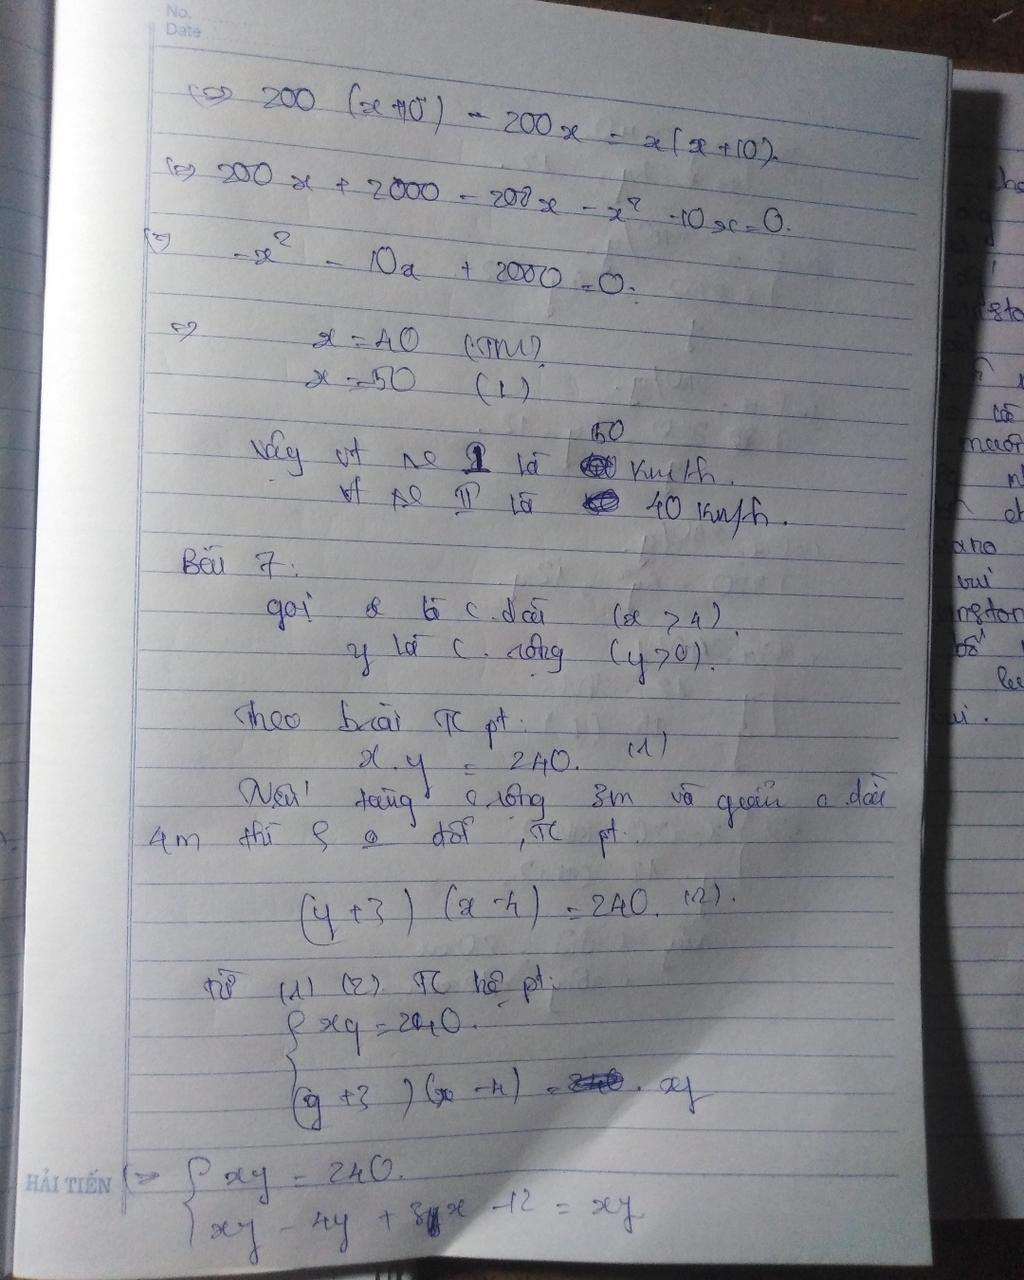 No.
Date
(=) 200 (x+10) - 200x = x(x+10).
(=) 200x + 2000 - 200x - x² - 10x = 0.
(=) -x² - 10x + 2000 = 0.
=> x = 40 (TM)
x = 50 (L)
50
Vậy vt xe I là km/h.
vt xe II là 40 km/h.
Bài 7:
gọi x là c. dài (x > 4)
y là c. rộng (y > 0).
Theo bài TC pt:
x.y = 240. (1)
Nếu tăng c rộng 3m và giảm c. dài
4m thì S o đổi, TC pt:
(y+3) (x-4) = 240. (2).
từ (1) (2). TC hệ pt:
{ xy = 240.
(y+3)(x-4) = xy
(=> { xy = 240.
xy - 4y + 3x - 12 = xy
HẢI TIẾN